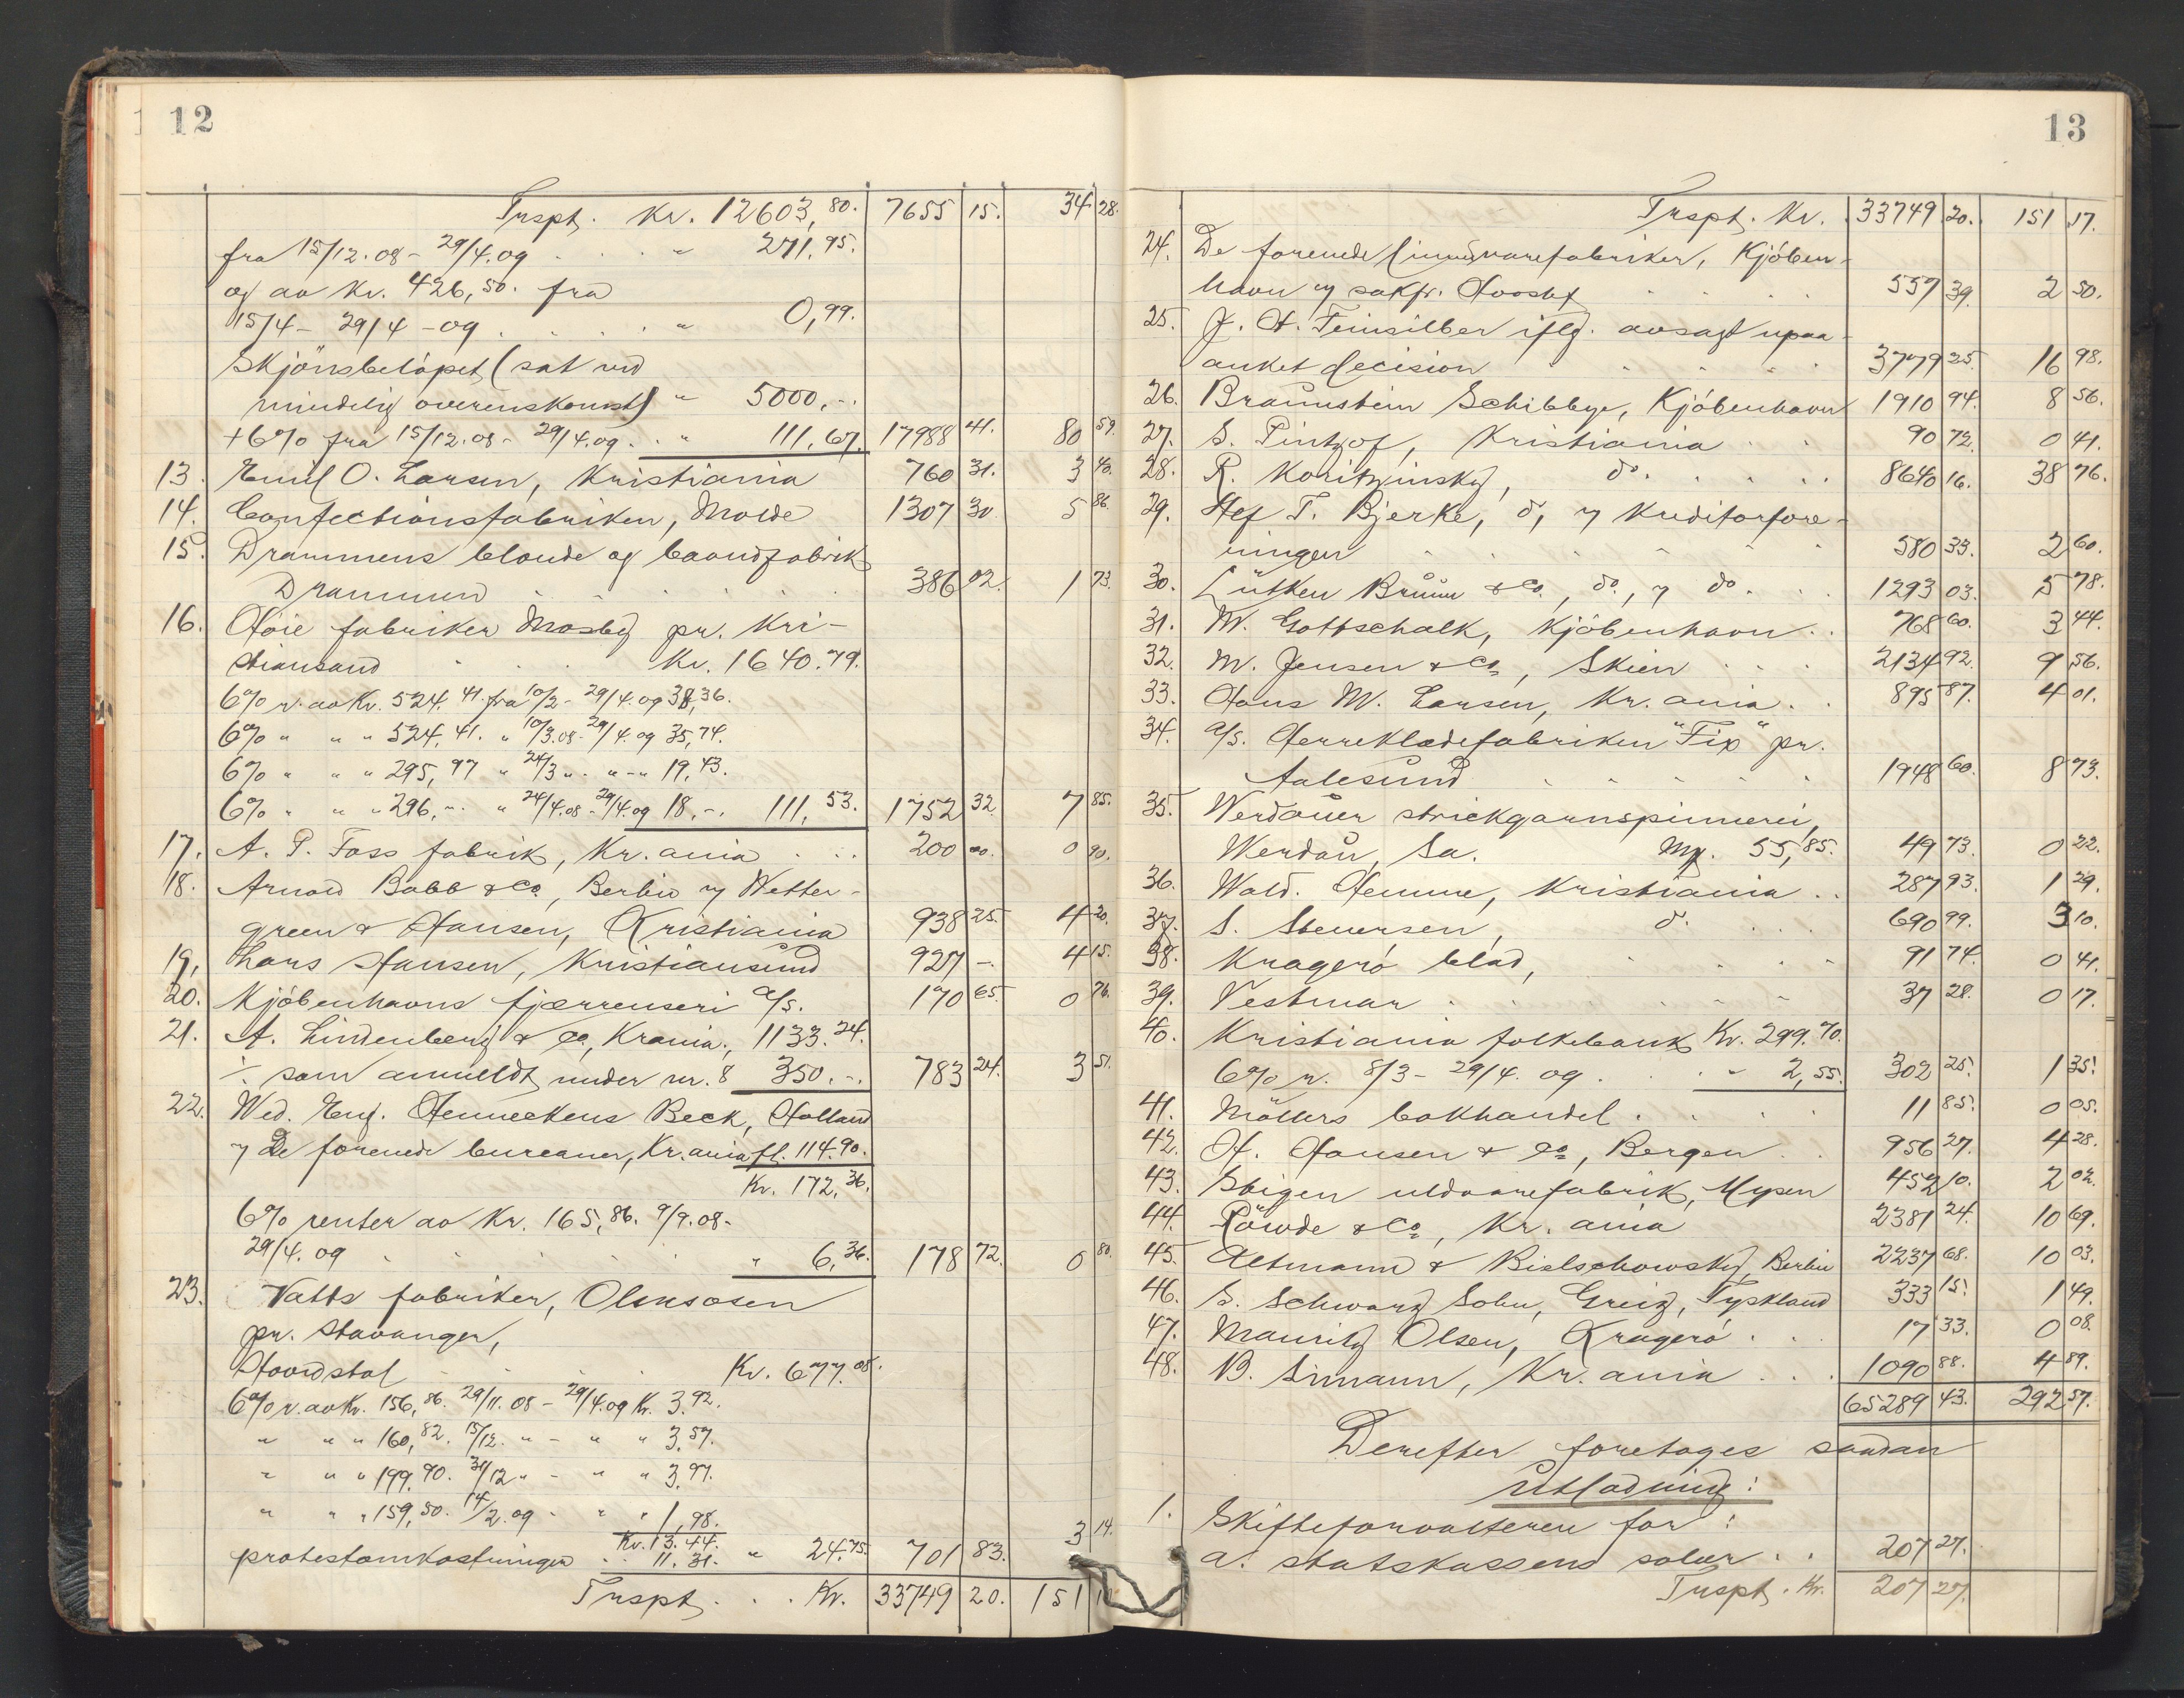 12
Trspt. Kr. 12603,80. 7655 15. 34 28.
fra 15/12.08 - 29/4.09 . . . " 271,95.
og av Kr. 426,50. fra
15/4 - 29/4 - 09 . . . . " 0,99.
Skjönsbelöpet (sat ved
mindelig overenskomst) " 5000,-.
+ 6% fra 15/12.08 - 29/4.09 . . " 111,67. 17988 41. 80 59.
13. Emil O. Larsen, Kristiania 760 31. 3 40.
14. Confectionsfabriken, Molde 1307 30 5 86.
15. Drammens blonde og baandfabrik
Drammen . . . . . . 386 02. 1 73.
16. Höie fabriker Mosby pr. Kri-
stiansand . . . Kr. 1640.79.
6% r. av Kr. 524.41. fra 10/2 - 29/4.09 38,36.
6% " " " 524,41. " 10/3.08 - 29/4.09 35,74.
6% " " " 295,97 " 24/3 " - " - " 19,43.
6% " " " 296,-. " 24/4.08 - 29/4.09 18,-. 111,53. 1752 32. 7 85.
17. A. P. Foss fabrik, Kr.ania . . . 200 00. 0 90.
18. Arnold Babb & Co, Berlin v/ Wetter-
green & Hansen, Kristiania 938 25. 4 20.
19. Lars Hansen, Kristiansund 927 -. 4 15.
20. Kjöbenhavns fjærrenseri a/s. 170 65. 0 76.
21. A. Lindenberg & Co, Krania., 1133.24.
÷ som anmeldt under nr. 8 350.-. 783 24. 3 51.
22. Wed. Eng. Henneekens Beck, Holland
v/ De forenede bureauer, Kr.ania fl. 114.90.
Kr. 172,36.
6% renter av Kr. 165,86. 9/9.08 -
29/4.09 . . . . . . " 6,36. 178 72. 0 80.
23. Vatts fabriker, Ølensosen
pr. Stavanger,
Hovedstol . . . . Kr. 677.08.
6% r. av Kr. 156,86. 29/11.08 - 29/4.09 Kr. 3.92.
" " " 160,82. 15/12. " - " " 3.57.
" " " 199,90. 31/12 " - " " 3.97.
" " " 159,50. 14/2.09 - " " 1,98.
Kr. 13.44.
protestomkostninger . . 11.31. " 24.75. 701 83. 3 14.
Trspt. . . Kr. 33749 20. 151
13
Trspt. Kr. 33749 20. 151 17.
24. De forenede linnedvarefabriker, Kjöben-
havn v/ sakfr. 557 39. 2 50.
25. J. A. Feinsilber iflg. avsagt upaa-
anket decision . . . . 3779 25. 16 98.
26. Braunstein Schibbye, Kjöbenhavn 1910 94. 8 56.
27. S. Pintzof, Kristiania . . 90 72. 0 41.
28. R. Koritzinsky, do. . . . . . 8640 16. 38 76.
29. Alf T. Bjerke, do, v/ Kreditorfore-
ningen . . . . . . 580 33. 2 60.
30. Lütken Bruun & Co., do., v/ do. . . 1293 03. 5 78.
31. M. Gottschalk, Kjöbenhavn . . 768 60. 3 44.
32. M. Jensen & Co, Skien . . . 2134 92. 9 56.
33. Hans M. Larsen, Kr.ania . . 895 87. 4 01.
34. a/s. Herreklædefabriken "Fix" pr.
Aalesund . . . . . 1948 60. 8 73.
35. Werdauer strickgarnspinnerei,
Werdau, Sa. Mk. 55,85. 49 73. 0 22.
36. Wald. Hemme, Kristiania . . 287 93. 1 29.
37. S. Steuersen, d. . . . 690 99. 3 10.
38. Kragerö blad, . . . . 91 74. 0 41.
39. Vestmar . . . . . . . 37 28. 0 17.
40. Kristiania folkebank Kr. 299.70.
6% r. 8/3 - 29/4.09 . . " 2,55. 302 25. 1 35.
41. Möllers bokhandel . . . . 11 85. 0 05.
42. H. Hansen & Co, Bergen . . 956 27. 4 28.
43. Stigen uldvarefabrik, Mysen 452 10. 2 02.
44. Löwde & Co, Kr.ania 2381 24. 10 69.
45. Altmann & Bielschowsky, Berlin 2237 68. 10 03.
46. S. Schwarz Sohn, Greiz, Tyskland 333 15. 1 49.
47. Mauritz Olsen, Kragerö . . 17 33. 0 08.
48. B. Simann, Kr.ania . . . 1090 88. 4 89.
65289 43. 292 57.
Derefter foretages saadan
utlodning:
1. Skifteforvalteren for:
a. statskassens salær . . 207 27.
Trspt. Kr. 207 27.